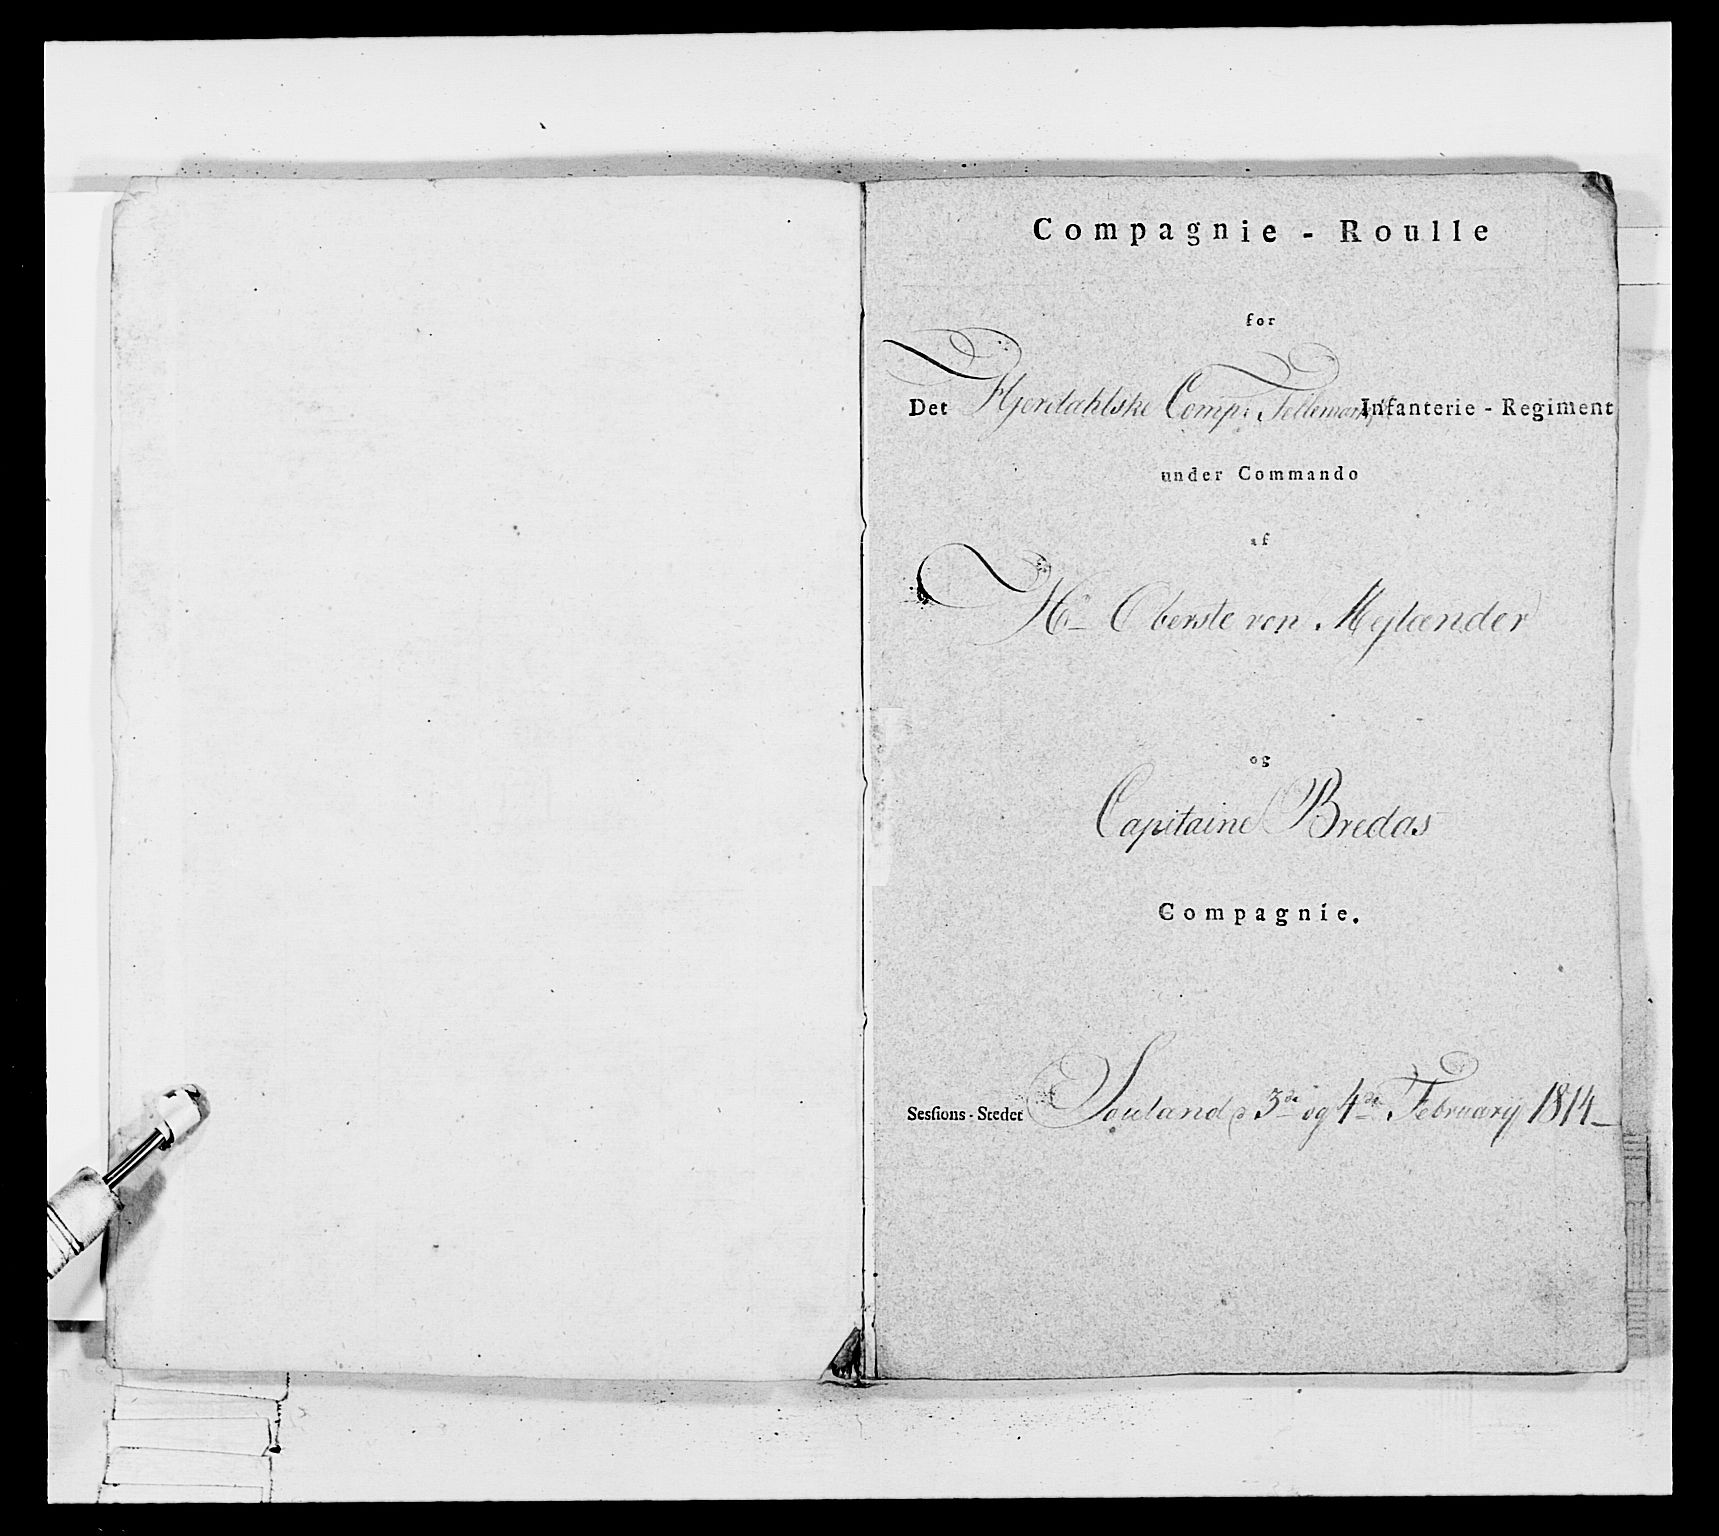 Compagnie - Roulle
for
Det Hjerdahlske Comp: Tellemark: Infanterie - Regiment
under Commando
af
Hr Oberste von Mejlænder
og
Capitaine Bredas
Compagnie.
Sesſions-Stedet Souland d 3de og 4de February 1814